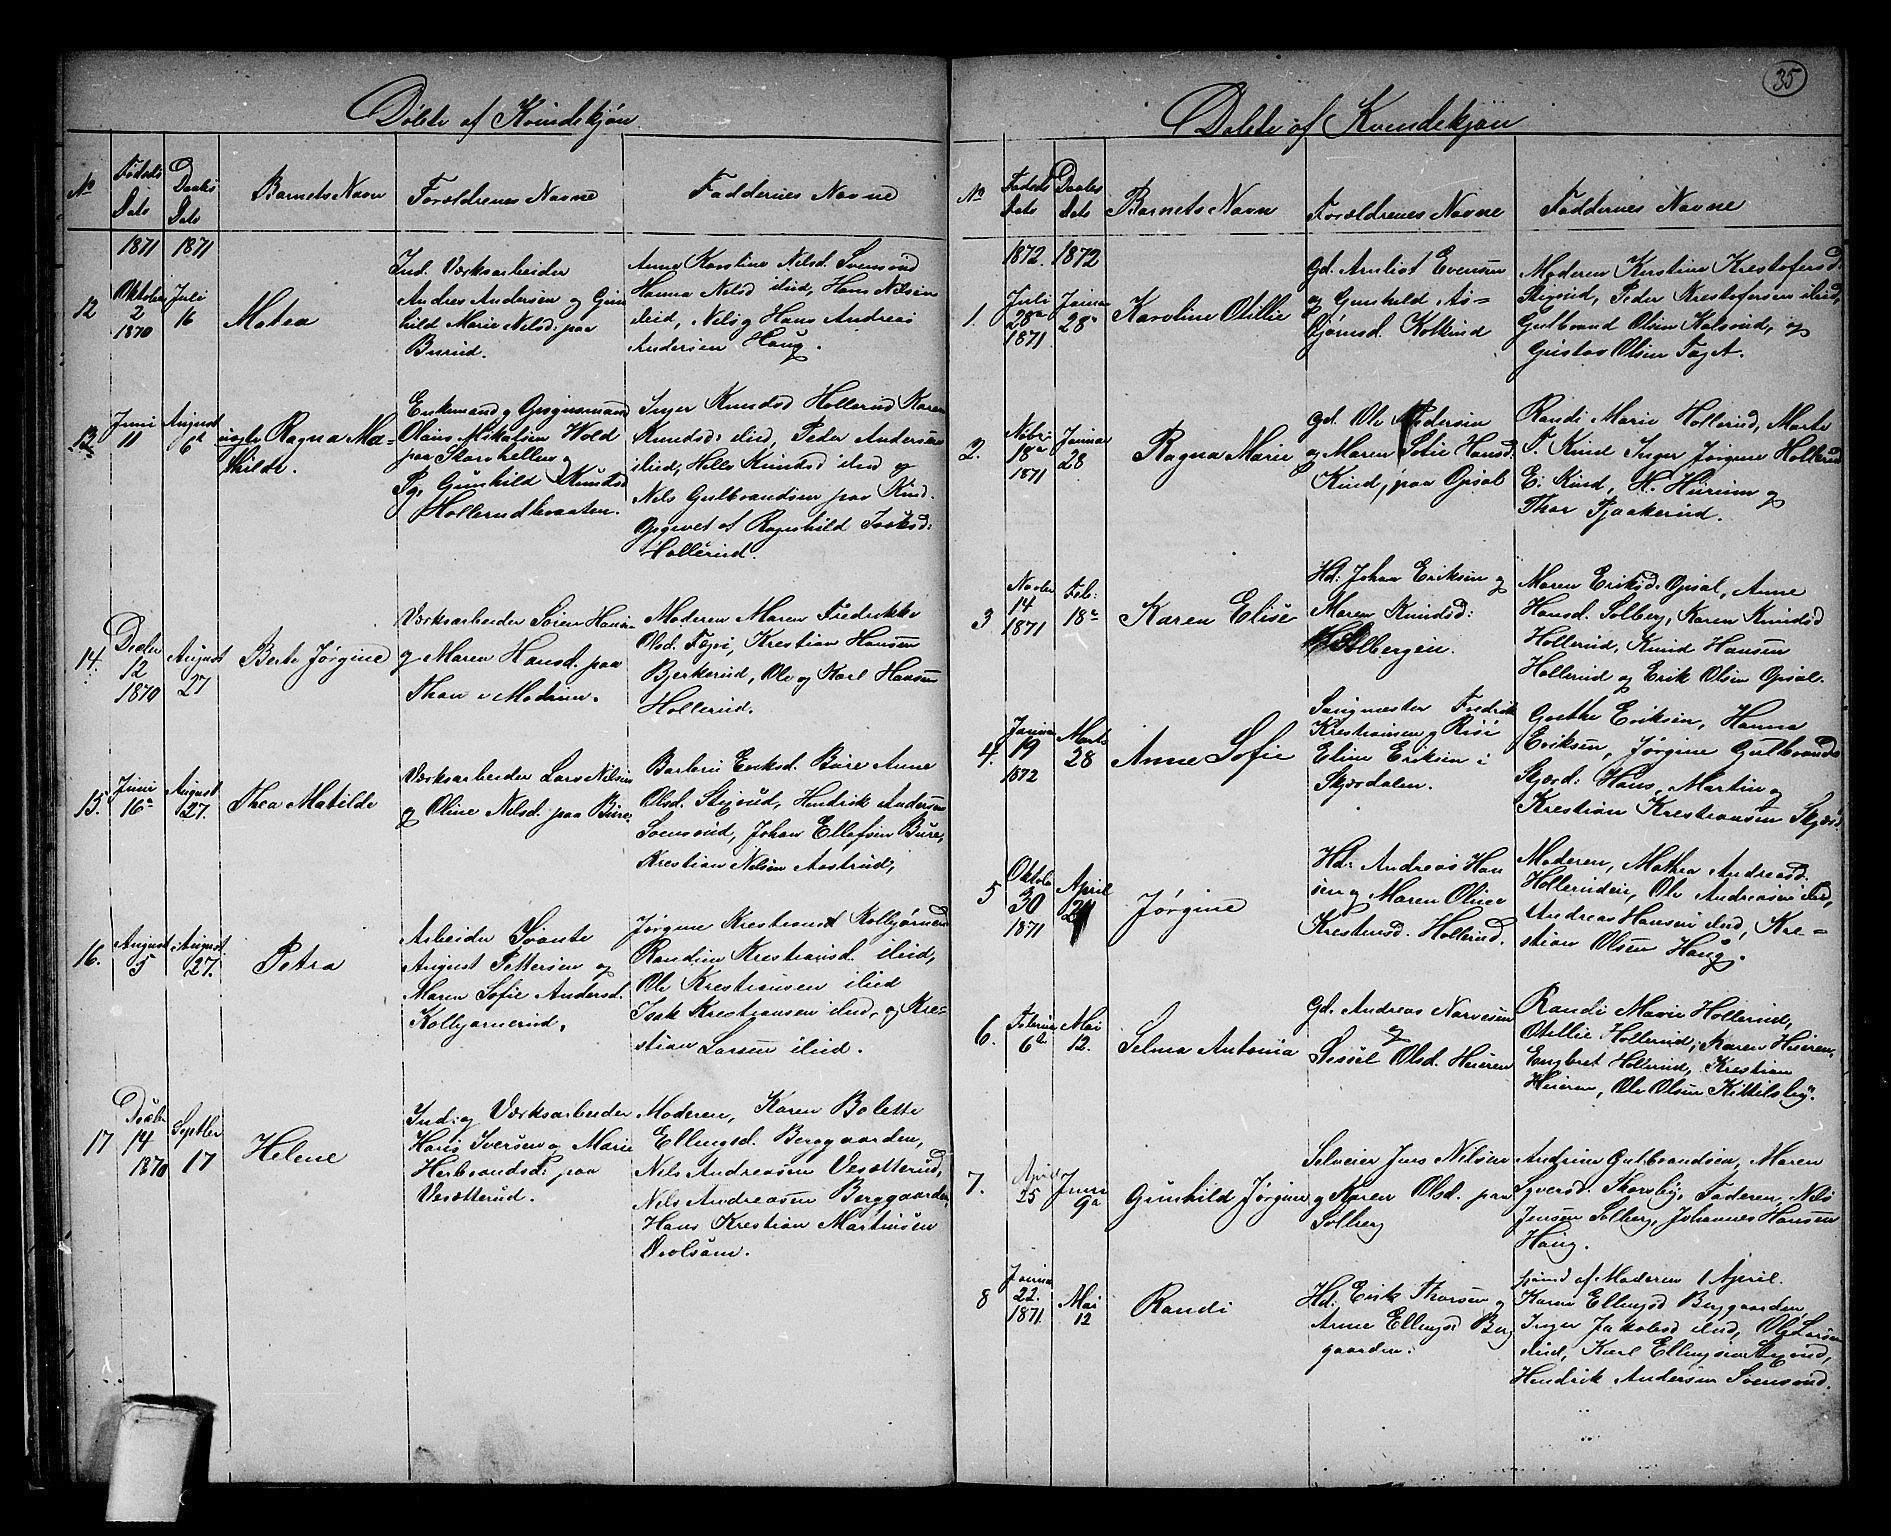 35
Døbte af Kvindekjøn
No
Fødsels Dato
Daabs Dato
Barnets Navn
Forældrenes Navne
Faddernes Navne
1871 1871
12
Oktober 2 1870
Juli 16
Matea
Ind. Værksarbeider
Andres Andersen og Gun
hild Marie Nilsd. paa
Burud.
Anne Karoline Nilsd. Svensrud
Hanna Nilsd ibid, Hans Nilsen
ibid, Nils og Hans Andreas
Andersen Haug.
13
Juni 11
August 6t
uegte Ragna Ma-
thilde.
Enkemand og Gaardmand
Olaus Mikalsen Wold
paa Skarshellen og
Pg. Gunhild Knutsd
Hollerudbraaten.
Inger Knudsd Hollerud Karen
Knudsd: ibid, Peder Andersen
ibid, Helle Knudsd ibid og
Nils Gulbrandsen paa Kind.
Opgivet af Ragnhild Isaksd:
Hollerud.
14.
Decbr 12 1870
August 27
Berte Jørgine
Værksarbeider Søren Hans-
og Maren Hansd. paa
Thon i Modum.
Moderen Maren Fredrikke
Olsd. Fegri, Krestian Hansen
Bjerkerud, Ole og Karl Hansen
Hollerud.
15.
Juni 16de
August 27.
Thea Matilde
Værksarbeider Lars Nilsen
og Oline Nilsd. paa Bure
Barbru Eriksd. Bure Anne
Olsd. Stigsrud, Hendrik Andersen
Svensrud, Johan Ellefsen Bure,
Krestian Nilsen Aastrud,
16.
August 5
August 27.
Petra
Arbeider Svante
August Pettersen og
Maren Sofie Andersd.
Kolbjørnerud.
Jørgine Krestiansd Kolbjørnrud
Randine Krestiansd. ibid,
Ole Krestiansen ibid
Isak Krestiansen ibid, og Kre-
stian Larsen ibid.
17
Decbr 14 1870
Septbr 17
Helene
Ind: og Værksarbeider
Hans Iversen og Marie
Herbrandsd: paa
Vesætterud.
Moderen, Karen Bolette
Ellingsd. Berggaarden,
Nils Andreasen Vesætterud,
Nils Andreasen Berggaarden,
Hans Krestian Martinsen
Døbte af Kvindekjøn
No
Fødsels Dato
Daabs Dato
Barnets Navn
Forældrenes Navne
Faddernes Navne
1872. 1872
1.
Juli 28de 1871
Janua 28de
Karoline Otillie
Gd. Arnliot Evensen
og Gunhild As-
bjørnsd. Kolkind
Moderen Kerstine Krestofersd.
Stigsrud, Peder Krestofersen ibid,
Gulbrand Olsen Kalsrud, og
Gustav Olsen Foget.
2.
Novbr. 18de 1871
Janua 28
Ragna Marie
Gd. Ole Pedersen
og Maren Sofie Hansd.
Kind, paa Opsal
Randi Marie Hollerud, Marte
T. Kind Inger Jørgine Hollerud
E. Kind, H. Hurum og
Thor Tjaakerud.
3
Novbr 14 1871
Feb: 18de
Karen Elise
Hd: Johan Eriksen og
Maren Knudsd:
Solbergen.
Maren Eriksd. Opsal, Anne
Hansd. Solberg, Karen Knudsd
Hollerud, Knud Hansen
Hollerud og Erik Olsen Opsal.
4.
Janua 19 1872
Marts 28
Anne Sofie
Sangmester Fredrik
Krestiansen og Risi
Eline Eriksen i
Skjærdalen.
Grethe Eriksen, Hanna
Eriksen, Jørgine Gulbrands
Skjærd: Hans, Martin og
Krestian Krestiansen Skjærd.
5
Oktobr 30 1871
April 21
Jørgine
Hd: Andreas Han
sen og Maren Oline
Krestensd. Hollerud.
Moderen, Mathea Andreasd.
Hollerudeie, Ole Andreasen ibid,
Andreas Hansen ibid, Kre-
stian Olsen Haug.
6.
Februa 6te
Mai 12.
Selma Antonia
Gd. Andreas Narvesen
og
Sissel Olsd. Heieren
Randi Marie Hollerud,
Otillie Hollerud, Karen Heieren,
Engbret Hollerud, Krestian
Heieren, Ole Olsen Kittelsby.
7.
April 25
Juni 9de
Gunhild Jørgine
Selveier Jens Nilsen
og Karen Olsd. paa
Solberg
Andrine Gulbrandsen, Maren
Syversd. Thorsby, Faderen, Nils
Jensen Solberg, Johannes Hansen
Haug.
8
Janua 22. 1871
Mai 12
Randi
Hd: Erik Thorsen og
Anne Ellingsd Berg
gaarden.
af Moderen 1 April.
Karen Ellingsd Berggaarden,
Inger Jakobsd ibid, Ole Larsen
ibid, Karl Ellingsen Stigsrud,
Hendrik Andersen Svensrud.